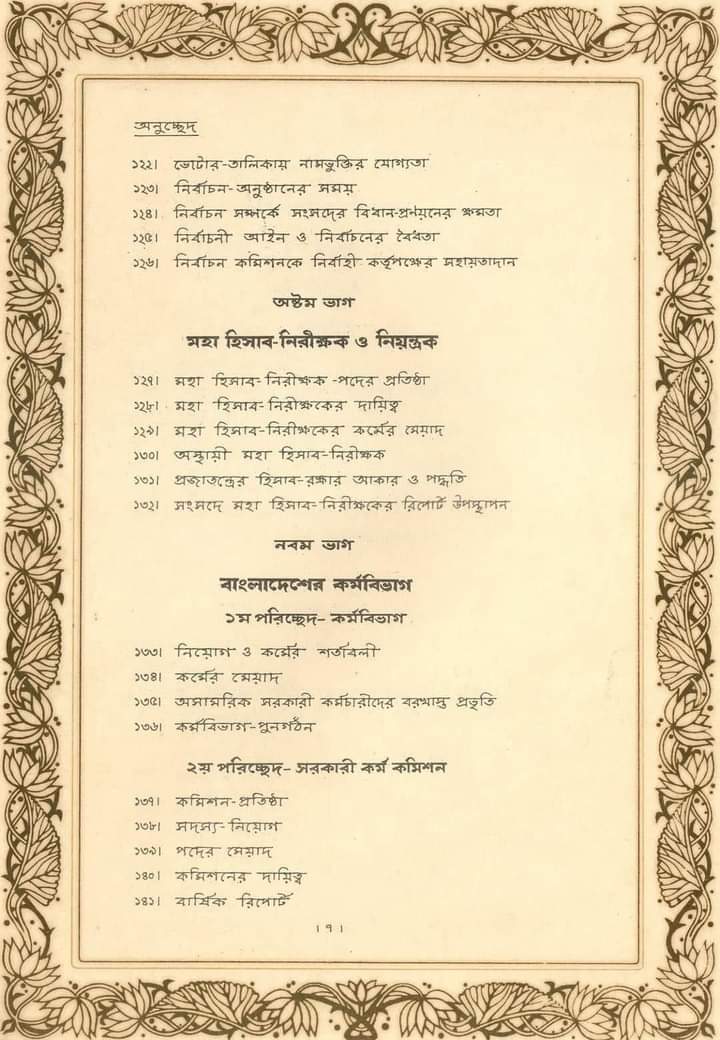 অনুচ্ছেদ
১২২। ভোটার-তালিকায় নামভুক্তির যোগ্যতা
১২৩। নির্বাচন-অনুষ্ঠানের সময়
১২৪। নির্বাচন সম্পর্কে সংসদের বিধান-প্রণয়নের ক্ষমতা
১২৫। নির্বাচনী আইন ও নির্বাচনের বৈধতা
১২৬। নির্বাচন কমিশনকে নির্বাহী কর্তৃপক্ষের সহায়তাদান
অষ্টম ভাগ
মহা হিসাব-নিরীক্ষক ও নিয়ন্ত্রক
১২৭। মহা হিসাব-নিরীক্ষক-পদের প্রতিষ্ঠা
১২৮। মহা হিসাব-নিরীক্ষকের দায়িত্ব
১২৯। মহা হিসাব-নিরীক্ষকের কর্মের মেয়াদ
১৩০। অস্থায়ী মহা হিসাব-নিরীক্ষক
১৩১। প্রজাতন্ত্রের হিসাব-রক্ষার আকার ও পদ্ধতি
১৩২। সংসদে মহা হিসাব-নিরীক্ষকের রিপোর্ট উপস্থাপন
নবম ভাগ
বাংলাদেশের কর্মবিভাগ
১ম পরিচ্ছেদ- কর্মবিভাগ
১৩৩। নিয়োগ ও কর্মের শর্তাবলী
১৩৪। কর্মের মেয়াদ
১৩৫। অসামরিক সরকারী কর্মচারীদের বরখাস্ত প্রভৃতি
১৩৬। কর্মবিভাগ-পুনর্গঠন
২য় পরিচ্ছেদ- সরকারী কর্ম কমিশন
১৩৭। কমিশন-প্রতিষ্ঠা
১৩৮। সদস্য-নিয়োগ
১৩৯। পদের মেয়াদ
১৪০। কমিশনের দায়িত্ব
১৪১। বার্ষিক রিপোর্ট
। ৭ ।